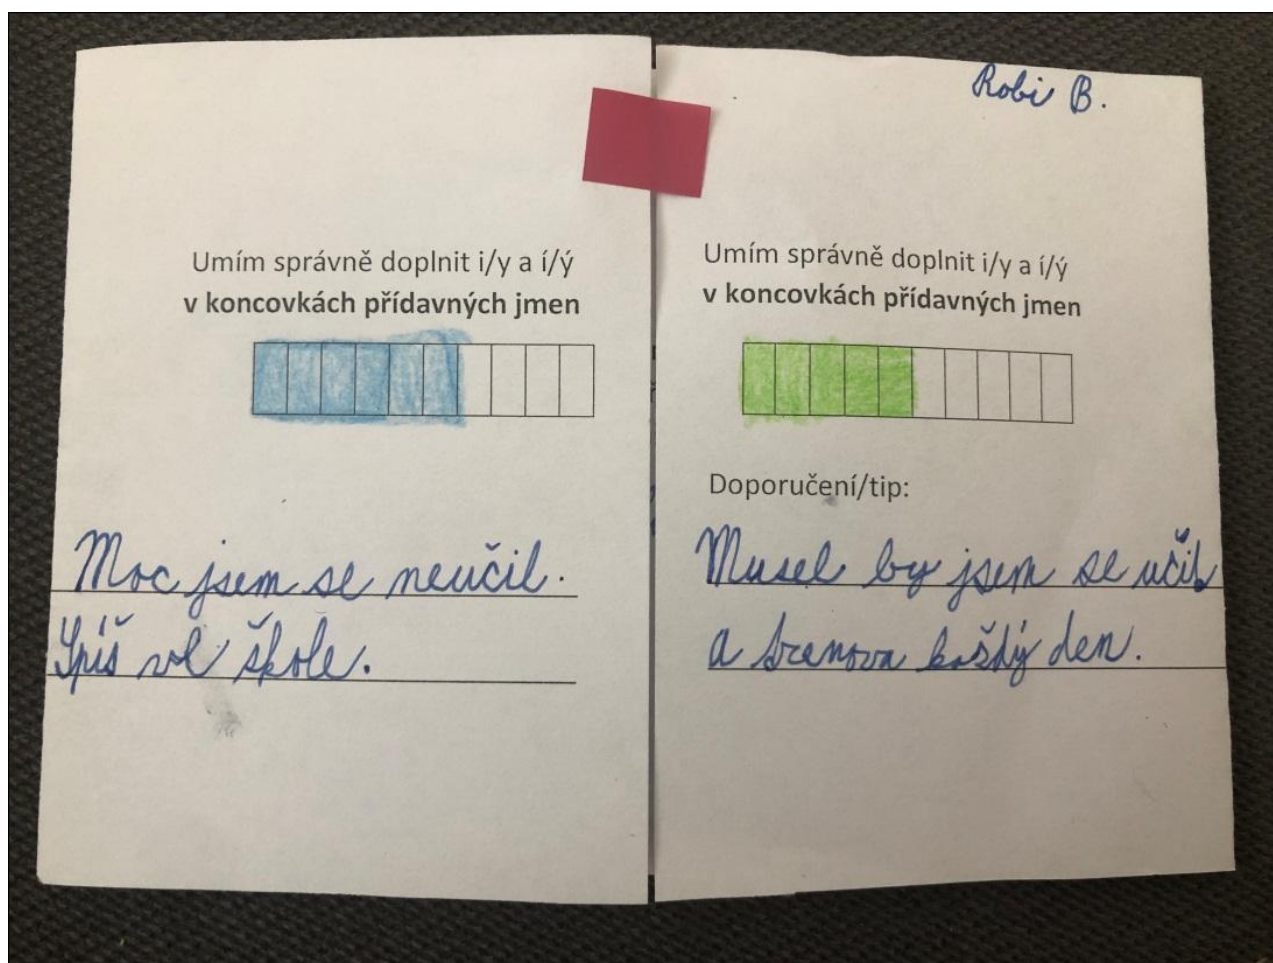 Robi B.
Umím správně doplnit i/y a í/ý
v koncovkách přídavných jmen
Moc jsem se neučil.
Spíš ve škole.
Umím správně doplnit i/y a í/ý
v koncovkách přídavných jmen
Doporučení/tip:
Musel by jsem se učit
a trenova každý den.